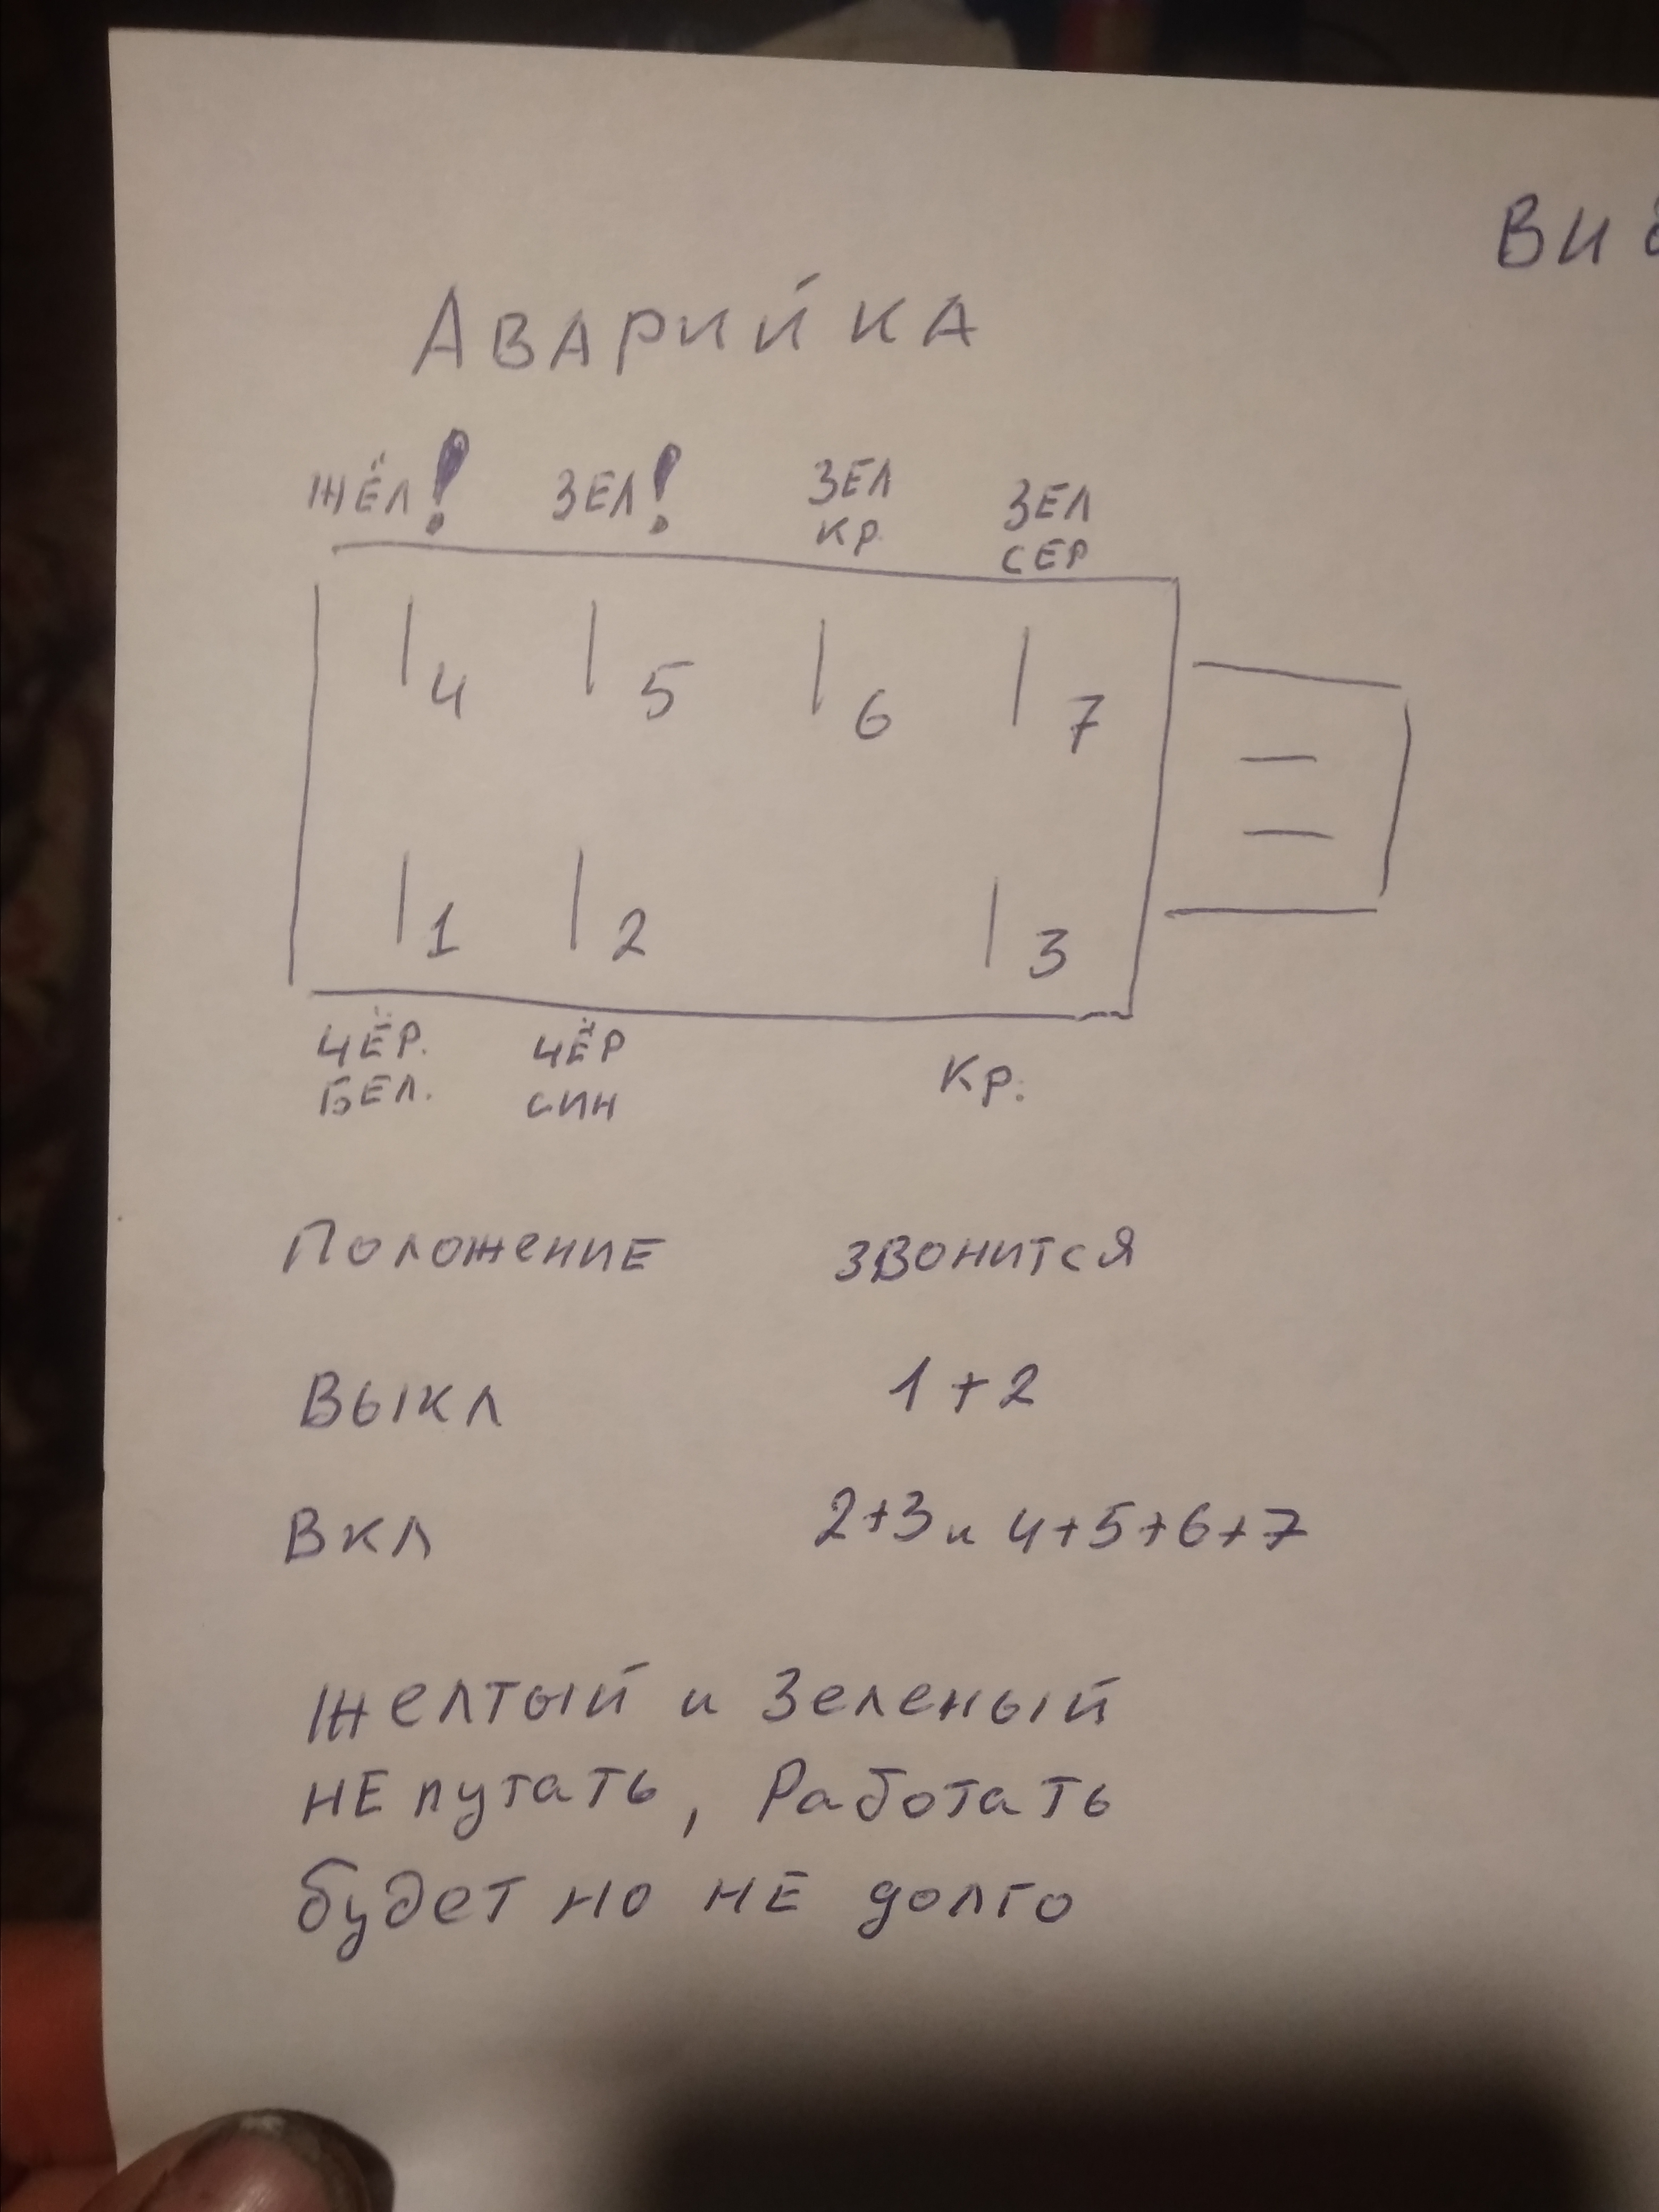 ВИ
АВАРИЙКА
ЖЁЛ! ЗЕЛ! ЗЕЛ КР. ЗЕЛ СЕР
4 5 6 7
1 2 3
ЧЁР. БЕЛ. ЧЁР СИН Кр.
Положение звонится
Выкл 1+2
Вкл 2+3 и 4+5+6+7
желтый и Зеленый
НЕ путать, Работать
будет но НЕ долго